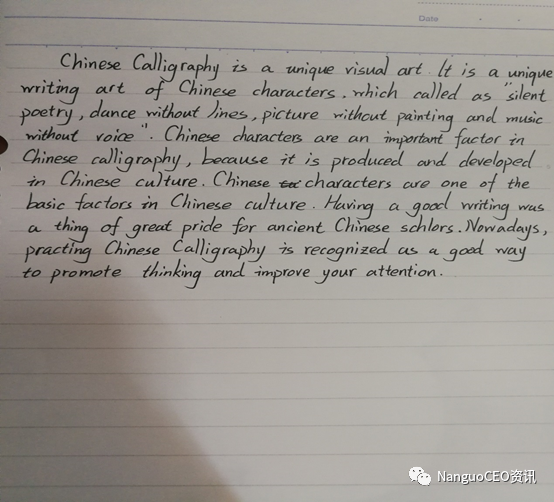 Date
Chinese Calligraphy is a unique visual art. It is a unique
writing art of Chinese characters, which called as "silent
poetry, dance without lines, picture without painting and music
without voice". Chinese characters are an important factor in
Chinese calligraphy, because it is produced and developed
in Chinese culture. Chinese characters are one of the
basic factors in Chinese culture. Having a good writing was
a thing of great pride for ancient Chinese schlors. Nowadays,
practing Chinese Calligraphy is recognized as a good way
to promote thinking and improve your attention.
NanguoCEO资讯